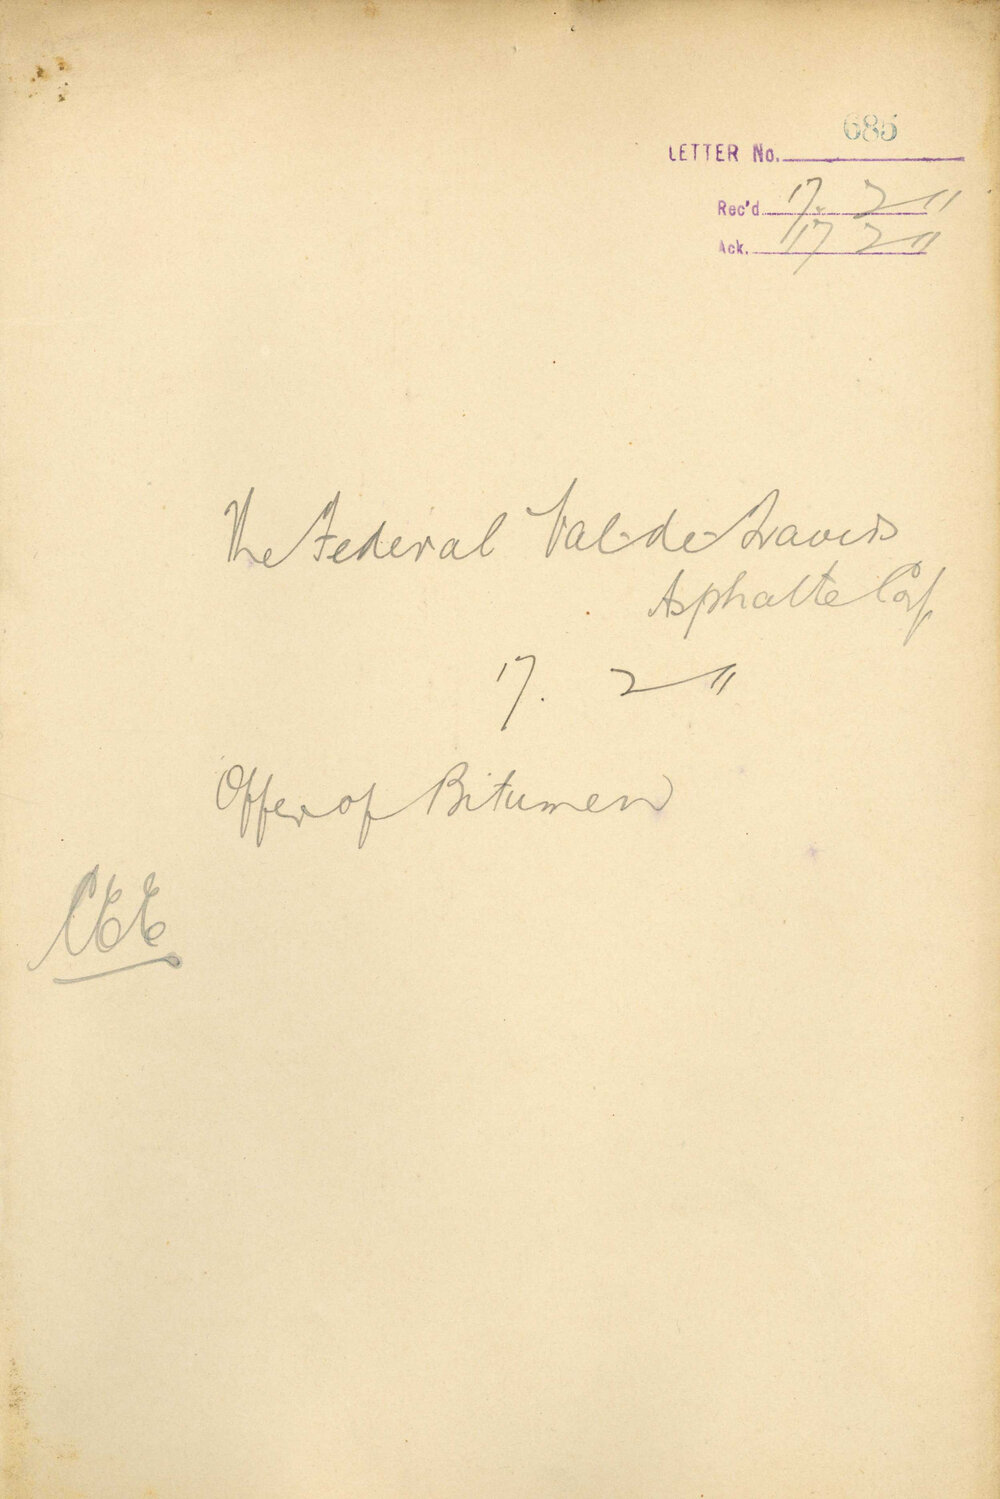 685
LETTER No.
Rec'd 17. 2 11
Ack. 17 2 11
The Federal Val-de-Travers
Asphalte Coy
17. 2 11
Offer of Bitumen
CEE